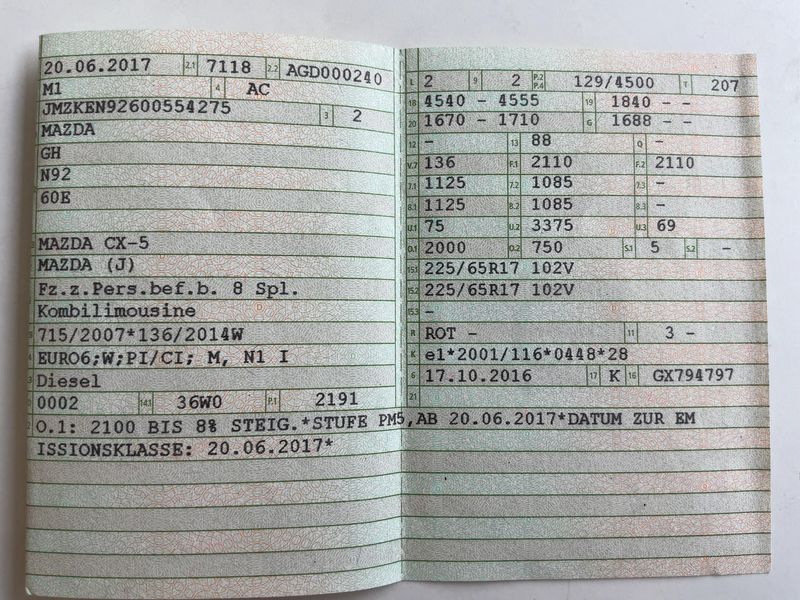 20.06.2017 2.1 7118 2.2 AGD000240
M1 4 AC
JMZKEN92600554275 3 2
MAZDA
GH
N92
60E
MAZDA CX-5
MAZDA (J)
Fz.z.Pers.bef.b. 8 Spl.
Kombilimousine
715/2007*136/2014W
EURO6;W;PI/CI; M, N1 I
Diesel
0002 14.1 36W0 P.1 2191
L 2 9 2 P.2 P.4 129/4500 T 207
18 4540 - 4555 19 1840 - -
20 1670 - 1710 G 1688 - -
12 - 13 88 Q -
V.7 136 F.1 2110 F.2 2110
7.1 1125 7.2 1085 7.3 -
8.1 1125 8.2 1085 8.3 -
U.1 75 U.2 3375 U.3 69
O.1 2000 O.2 750 S.1 5 S.2 -
15.1 225/65R17 102V
15.2 225/65R17 102V
15.3 -
R ROT - 11 3 -
K e1*2001/116*0448*28
6 17.10.2016 17 K 16 GX794797
21
O.1: 2100 BIS 8% STEIG.*STUFE PM5,AB 20.06.2017*DATUM ZUR EM
ISSIONSKLASSE: 20.06.2017*